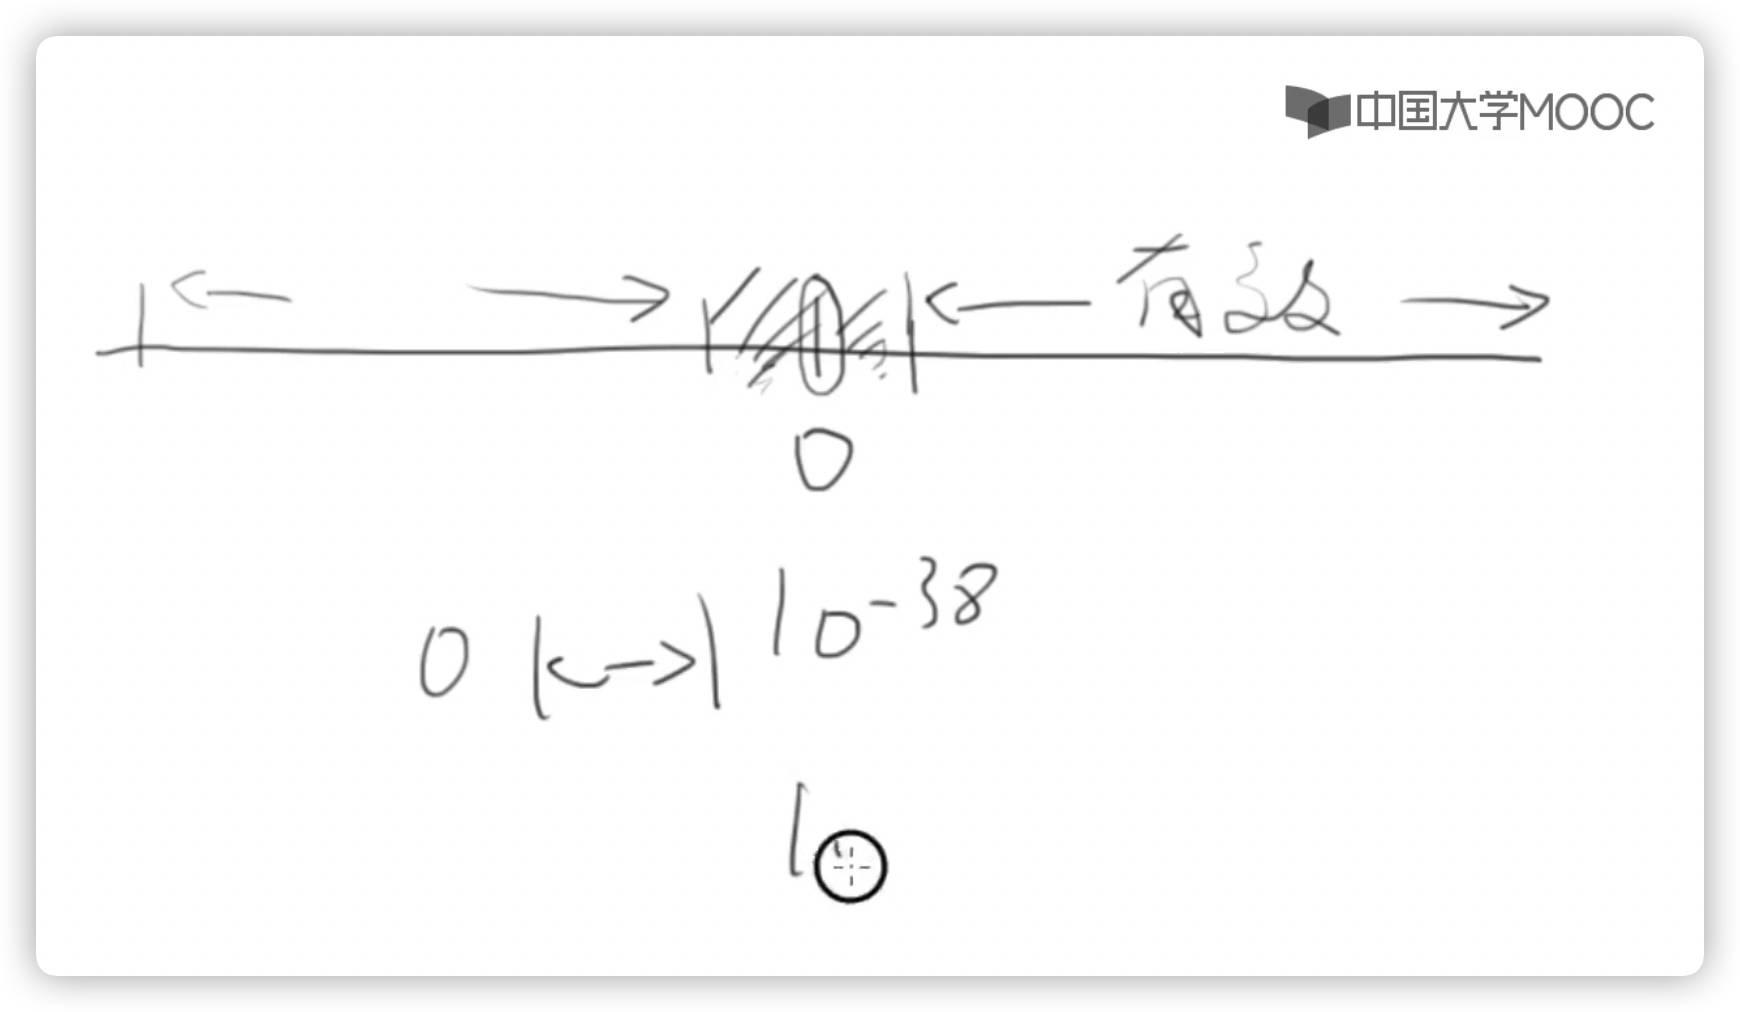 中国大学MOOC
有效
0
0 10^-38
1